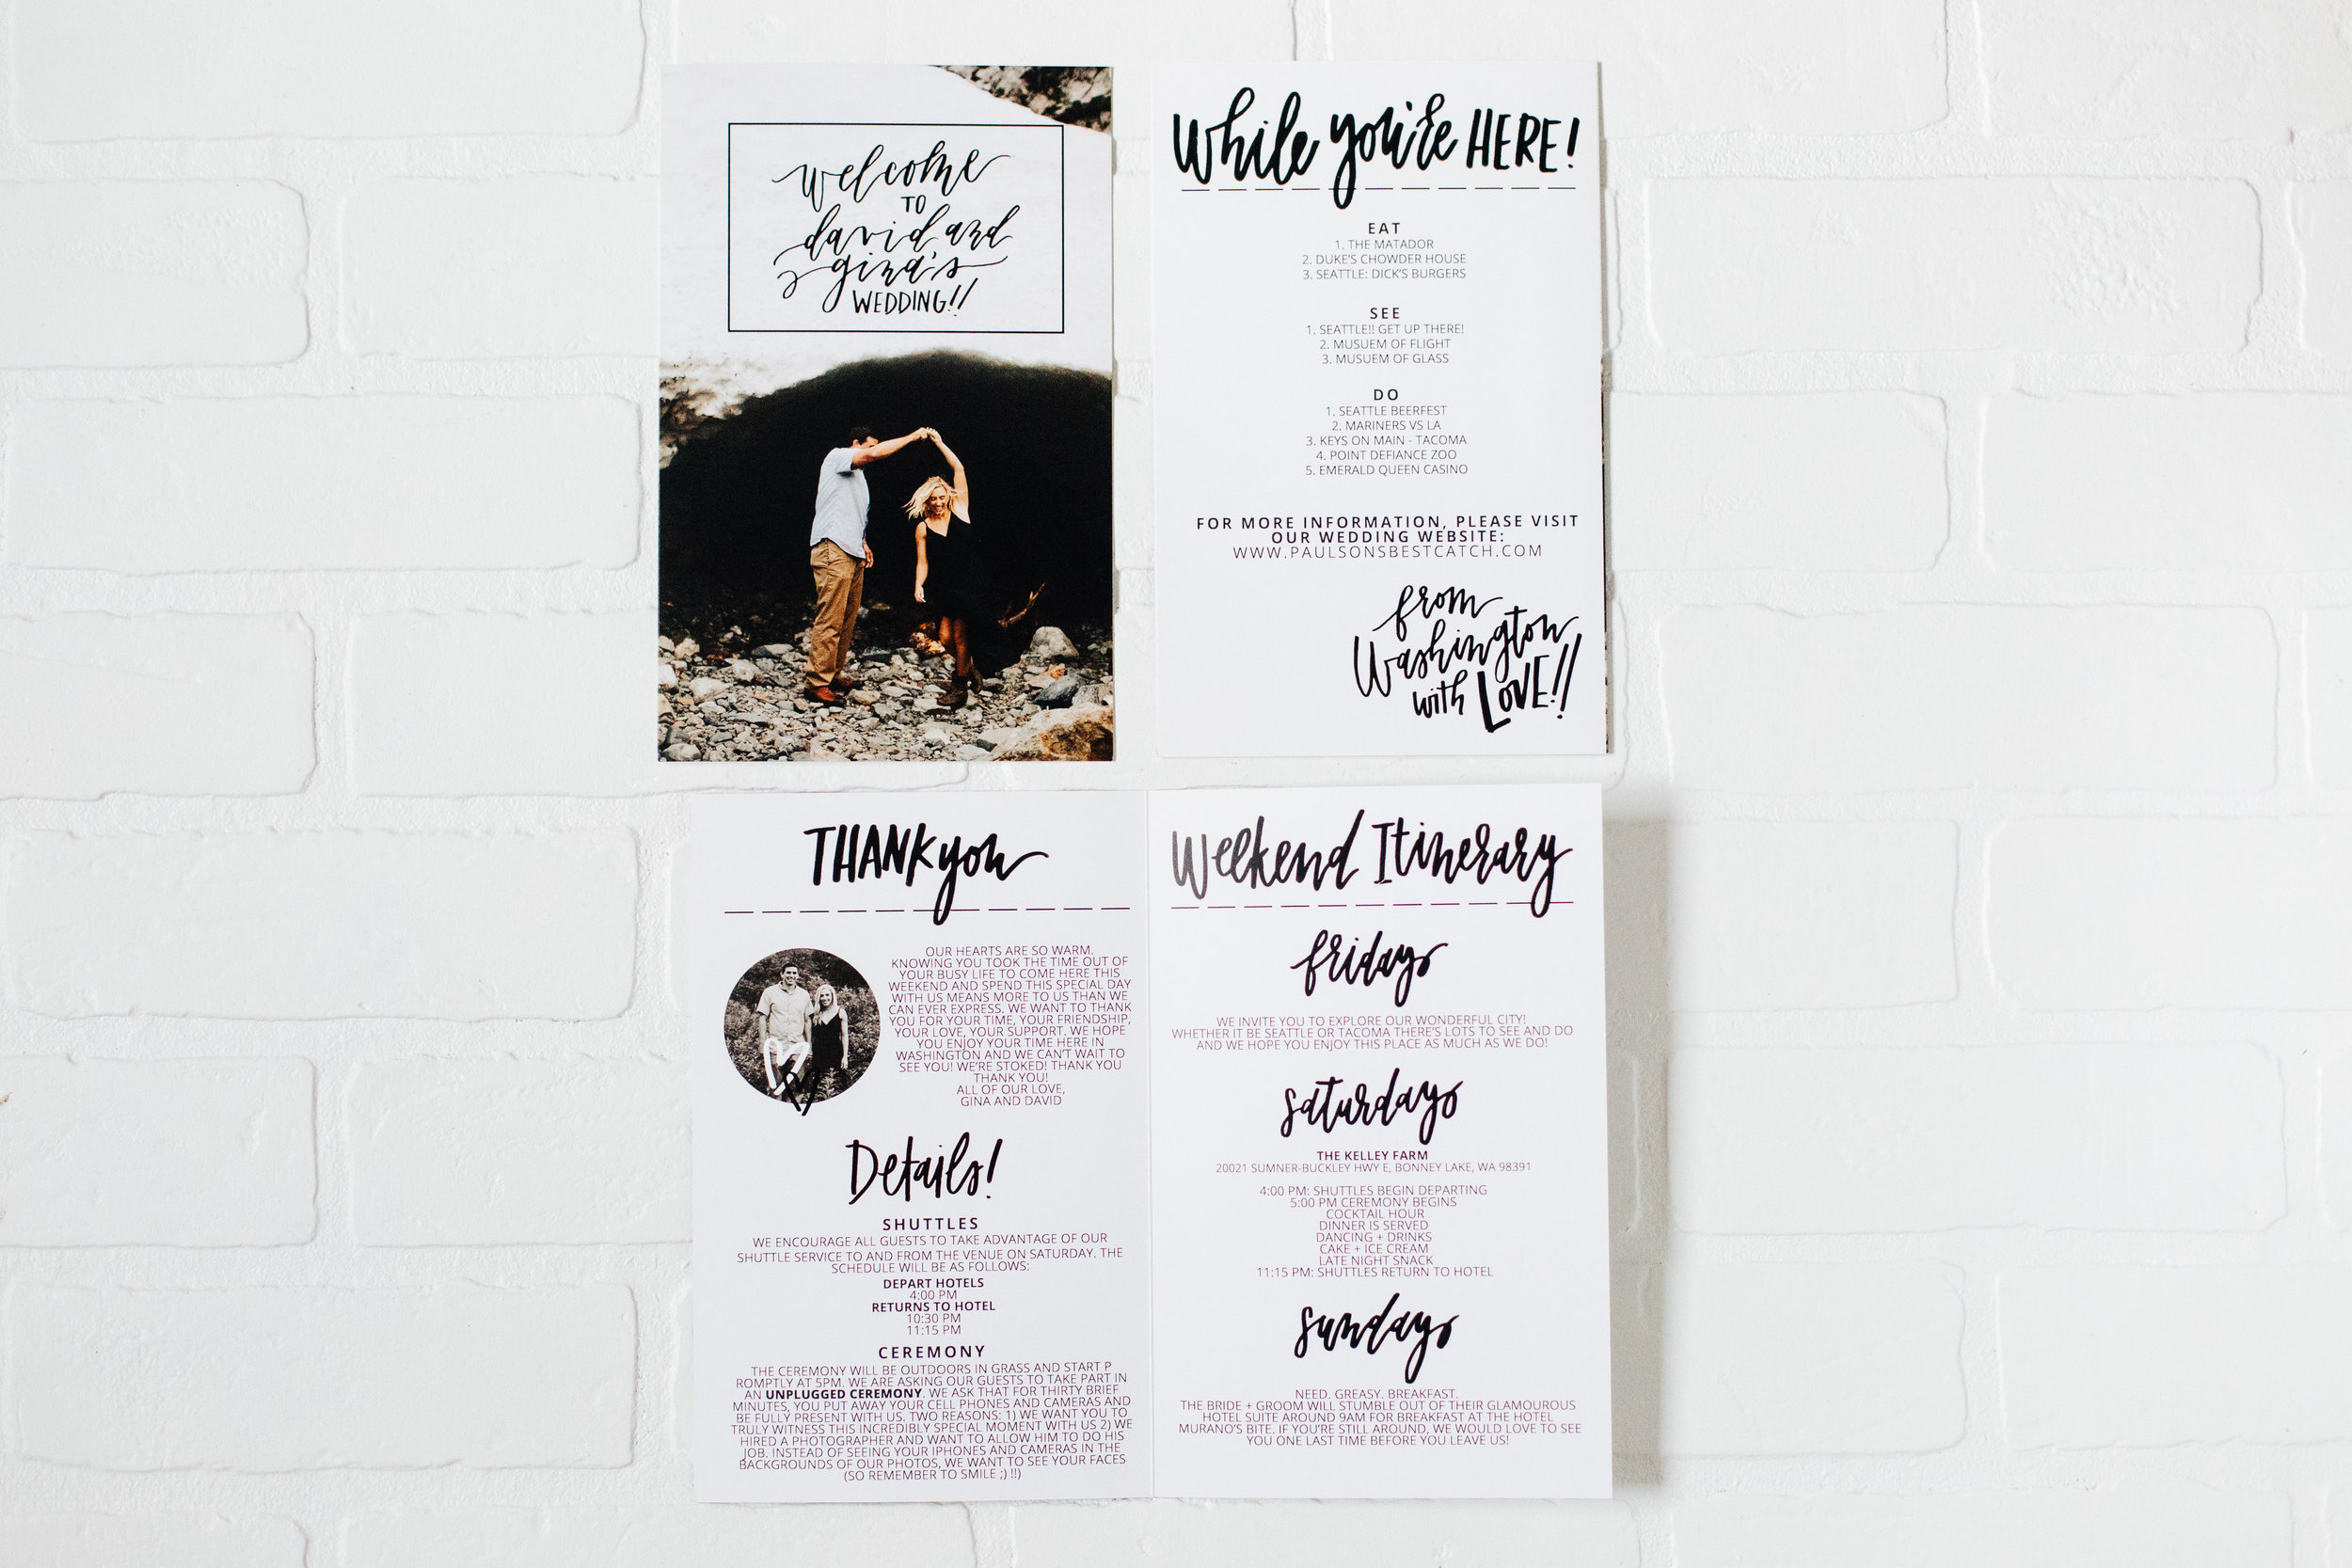 welcome
TO
david and
gina's
WEDDING!!
While you're HERE!
EAT
1. THE MATADOR
2. DUKE'S CHOWDER HOUSE
3. SEATTLE: DICK'S BURGERS
SEE
1. SEATTLE!! GET UP THERE!
2. MUSUEM OF FLIGHT
3. MUSUEM OF GLASS
DO
1. SEATTLE BEERFEST
2. MARINERS VS LA
3. KEYS ON MAIN - TACOMA
4. POINT DEFIANCE ZOO
5. EMERALD QUEEN CASINO
FOR MORE INFORMATION, PLEASE VISIT
OUR WEDDING WEBSITE:
WWW.PAULSONSBESTCATCH.COM
from
Washington
with LOVE!!
THANK you
OUR HEARTS ARE SO WARM.
KNOWING YOU TOOK THE TIME OUT OF
YOUR BUSY LIFE TO COME HERE THIS
WEEKEND AND SPEND THIS SPECIAL DAY
WITH US MEANS MORE TO US THAN WE
CAN EVER EXPRESS. WE WANT TO THANK
YOU FOR YOUR TIME, YOUR FRIENDSHIP,
YOUR LOVE, YOUR SUPPORT. WE HOPE
YOU ENJOY YOUR TIME HERE IN
WASHINGTON AND WE CAN'T WAIT TO
SEE YOU! WE'RE STOKED! THANK YOU
THANK YOU!
ALL OF OUR LOVE,
GINA AND DAVID
Details!
SHUTTLES
WE ENCOURAGE ALL GUESTS TO TAKE ADVANTAGE OF OUR
SHUTTLE SERVICE TO AND FROM THE VENUE ON SATURDAY. THE
SCHEDULE WILL BE AS FOLLOWS:
DEPART HOTELS
4:00 PM
RETURNS TO HOTEL
10:30 PM
11:15 PM
CEREMONY
THE CEREMONY WILL BE OUTDOORS IN GRASS AND START P
ROMPTLY AT 5PM. WE ARE ASKING OUR GUESTS TO TAKE PART IN
AN UNPLUGGED CEREMONY. WE ASK THAT FOR THIRTY BRIEF
MINUTES, YOU PUT AWAY YOUR CELL PHONES AND CAMERAS AND
BE FULLY PRESENT WITH US. TWO REASONS: 1) WE WANT YOU TO
TRULY WITNESS THIS INCREDIBLY SPECIAL MOMENT WITH US 2) WE
HIRED A PHOTOGRAPHER AND WANT TO ALLOW HIM TO DO HIS
JOB. INSTEAD OF SEEING YOUR IPHONES AND CAMERAS IN THE
BACKGROUNDS OF OUR PHOTOS, WE WANT TO SEE YOUR FACES
(SO REMEMBER TO SMILE ;) !!)
Weekend Itinerary
friday
WE INVITE YOU TO EXPLORE OUR WONDERFUL CITY!
WHETHER IT BE SEATTLE OR TACOMA THERE'S LOTS TO SEE AND DO
AND WE HOPE YOU ENJOY THIS PLACE AS MUCH AS WE DO!
saturday
THE KELLEY FARM
20021 SUMNER-BUCKLEY HWY E, BONNEY LAKE, WA 98391
4:00 PM: SHUTTLES BEGIN DEPARTING
5:00 PM CEREMONY BEGINS
COCKTAIL HOUR
DINNER IS SERVED
DANCING + DRINKS
CAKE + ICE CREAM
LATE NIGHT SNACK
11:15 PM: SHUTTLES RETURN TO HOTEL
sunday
NEED. GREASY. BREAKFAST.
THE BRIDE + GROOM WILL STUMBLE OUT OF THEIR GLAMOUROUS
HOTEL SUITE AROUND 9AM FOR BREAKFAST AT THE HOTEL
MURANO'S BITE. IF YOU'RE STILL AROUND, WE WOULD LOVE TO SEE
YOU ONE LAST TIME BEFORE YOU LEAVE US!